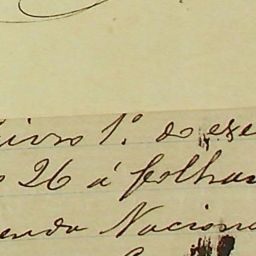 livro 1º do exe
26 á folhas
enda Naciona